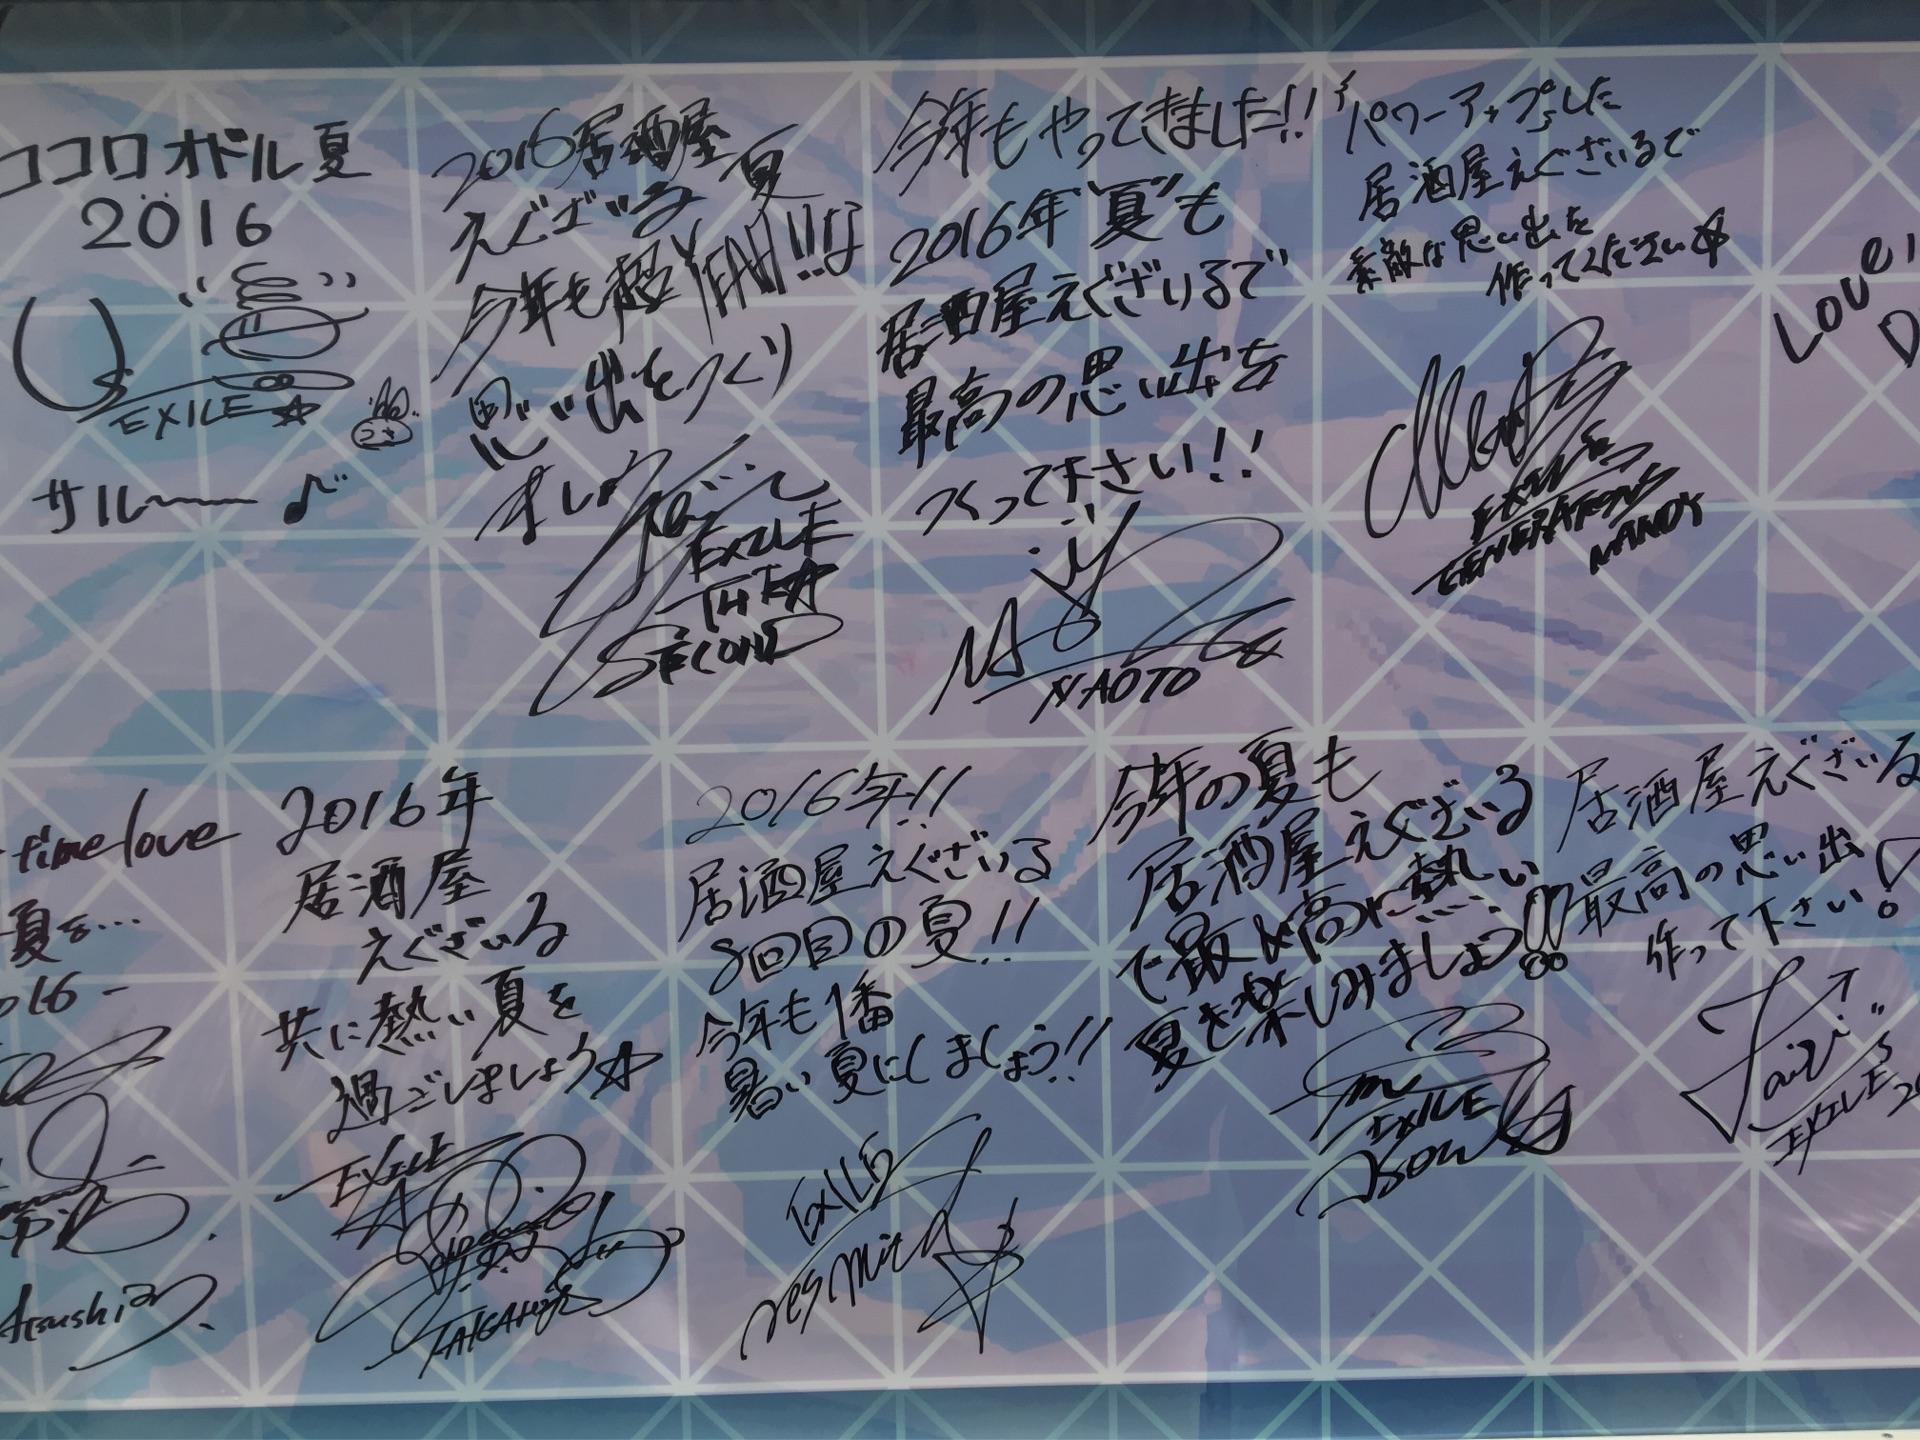 ココロオドル夏
2016
EXILE
サルー♪
2016居酒屋
えぐざいる 夏
今年も超YEAH!!な
思い出をつくり
ましょう
EXILE
THE
SECOND
今年もやってきました!!
2016年"夏"も
居酒屋えぐざいるで
最高の思い出を
つくって下さい!!
NAOTO
パワーアップした
居酒屋えぐざいるで
素敵な思い出を
作ってください☆
EXILE
GENERATIONS
MANDY
LOVE,
D
time love
夏を...
016-
Atsushi
2016年
居酒屋
えぐざいる
共に熱い夏を
過ごしましょう☆
EXILE
2016年!!
居酒屋えぐざいる
8回目の夏!!
今年も1番
暑い夏にしましょう!!
EXILE
今年の夏も
居酒屋えぐざいる
で最&高に熱い
夏を楽しみましょう!!
EXILE
居酒屋えぐざいる
最高の思い出
作って下さい!
EXILE